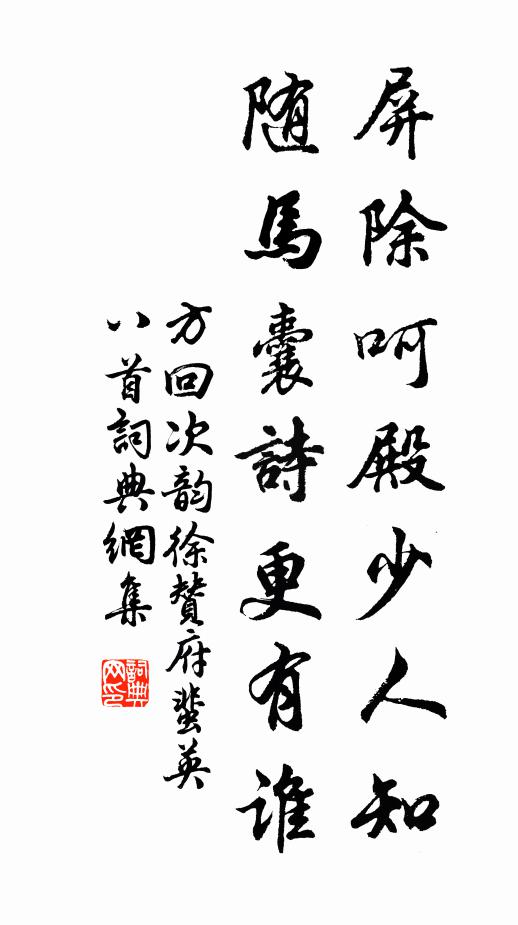 屏除呵殿少人知
随馬囊詩更有誰
方回次韵徐贊府蜚英
八首詞典網集